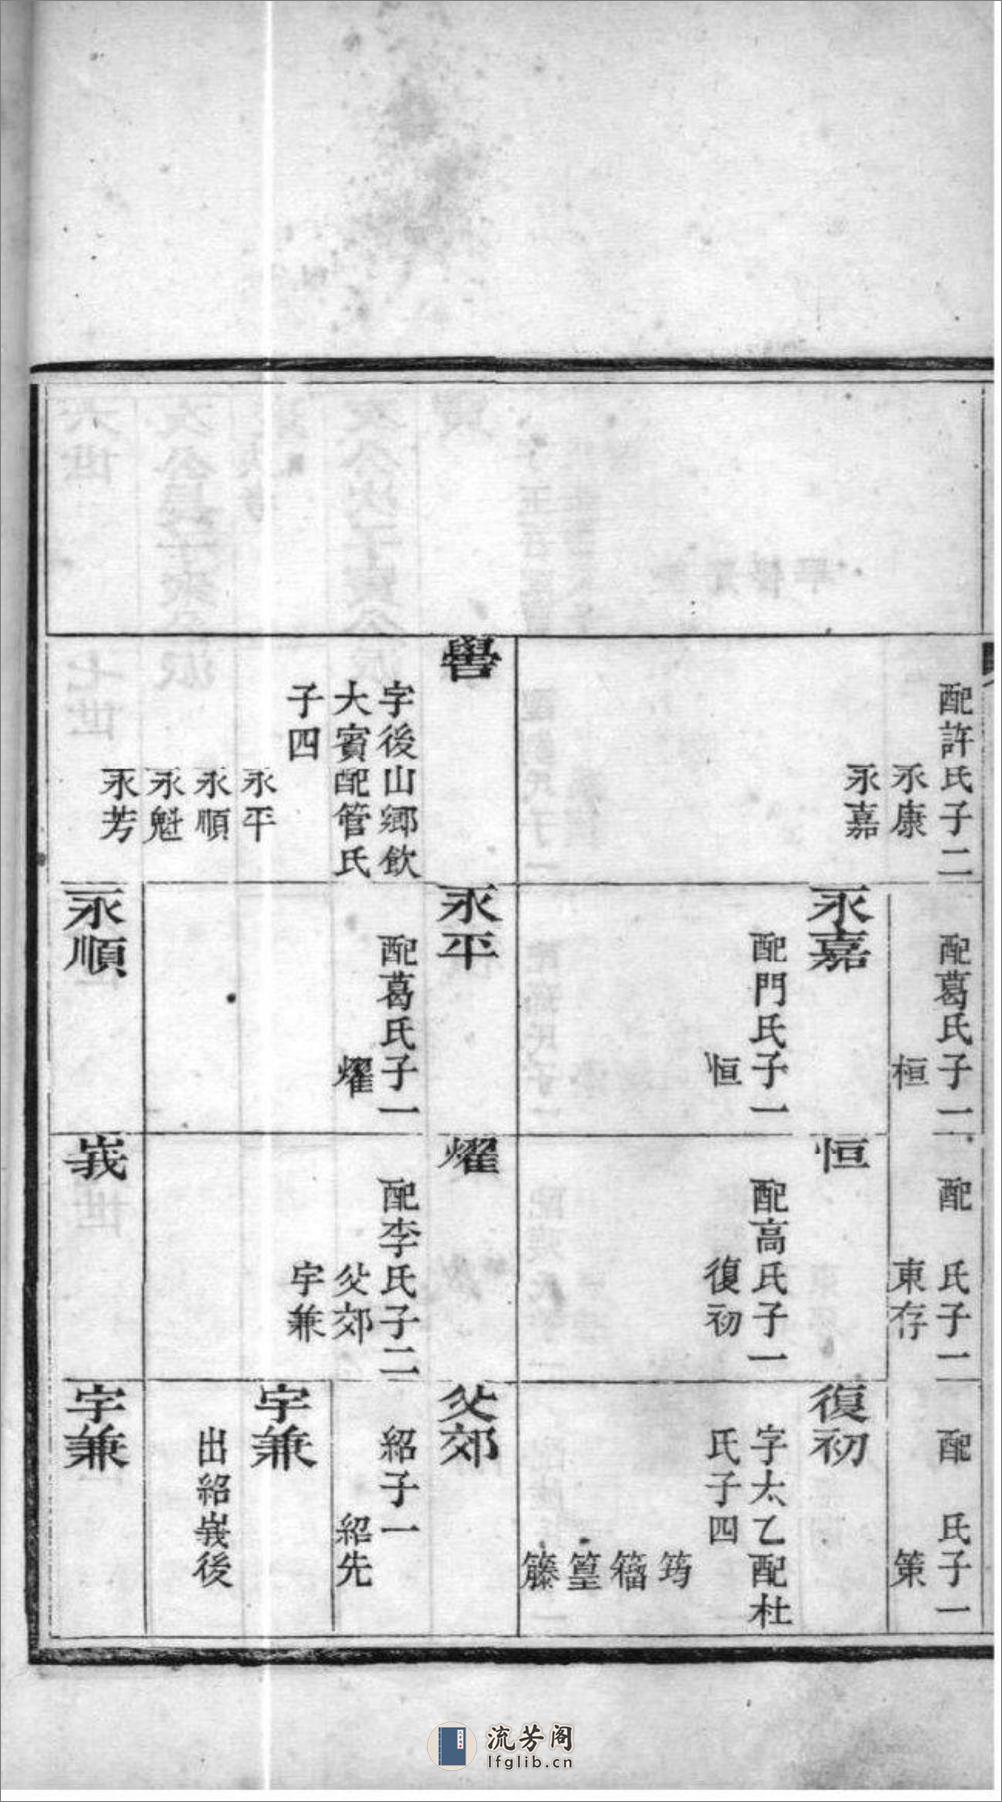 配許氏子二
永康
永嘉
譽
字後山鄉飲
大賓配管氏
子四
永平
永順
永魁
永芳
配葛氏子一
桓
永嘉
配門氏子一
恒
永平
配葛氏子一
燿
永順
配　氏子一
東存
恒
配高氏子一
復初
燿
配李氏子二
父郊
宇兼
峩
配　氏子一
策
復初
字太乙配杜
氏子四
筠
籀
篁
籐
父郊
紹子一
紹先
宇兼
出紹峩後
宇兼
流芳阁
lfglib.cn